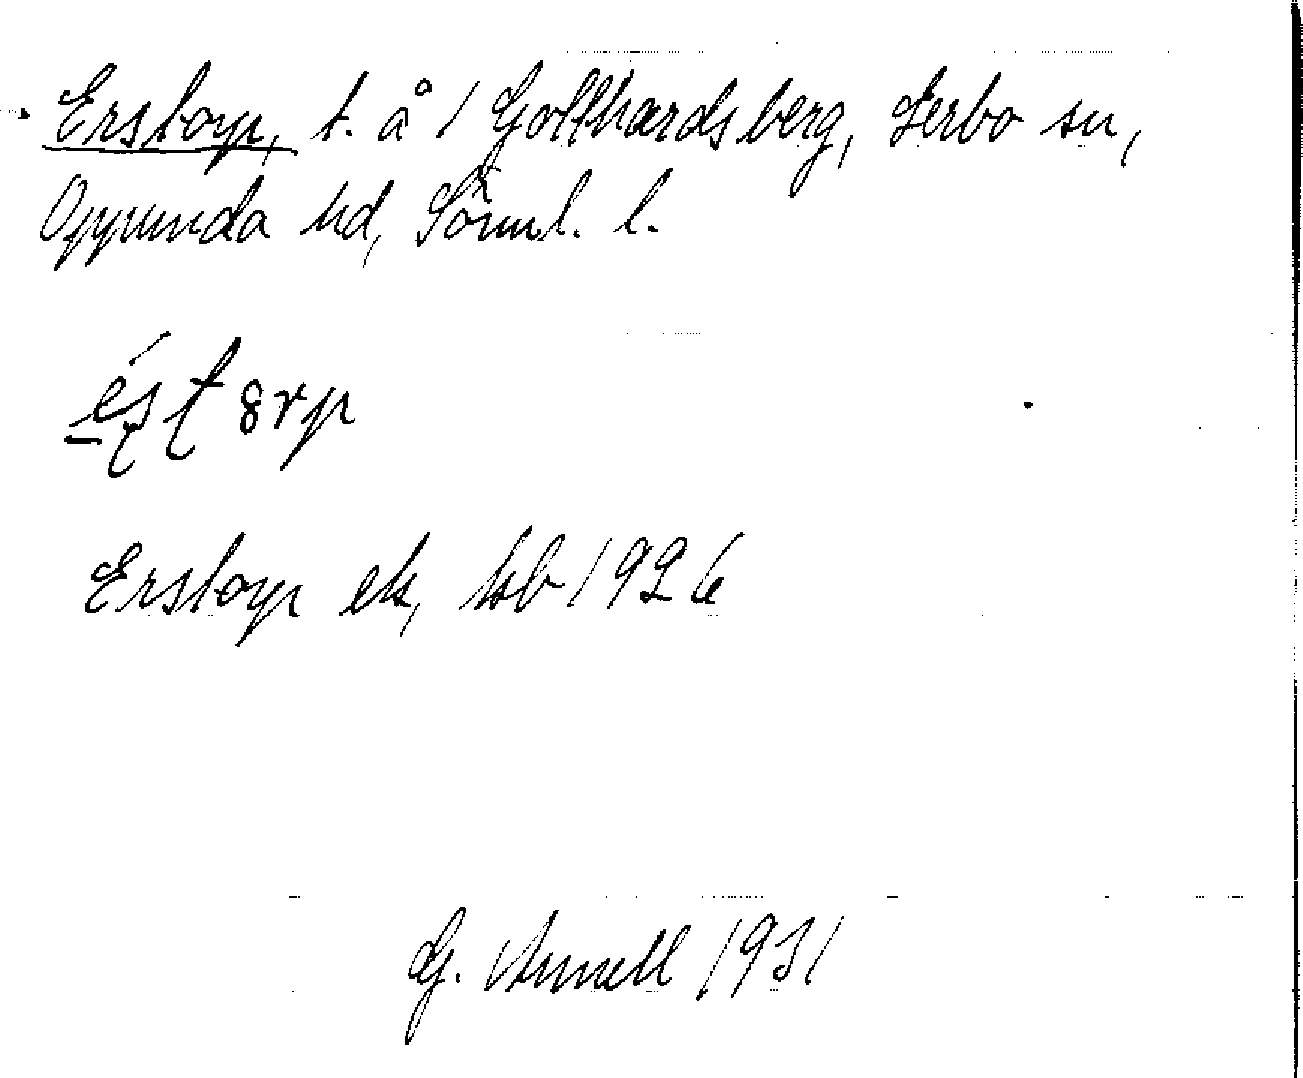 Erstorp, t. å 1 Gotthardsberg, Lerbo sn,
Oppunda hd, Sörml. l.
Erstorp ek, hb 1926
G. Arnell 1931